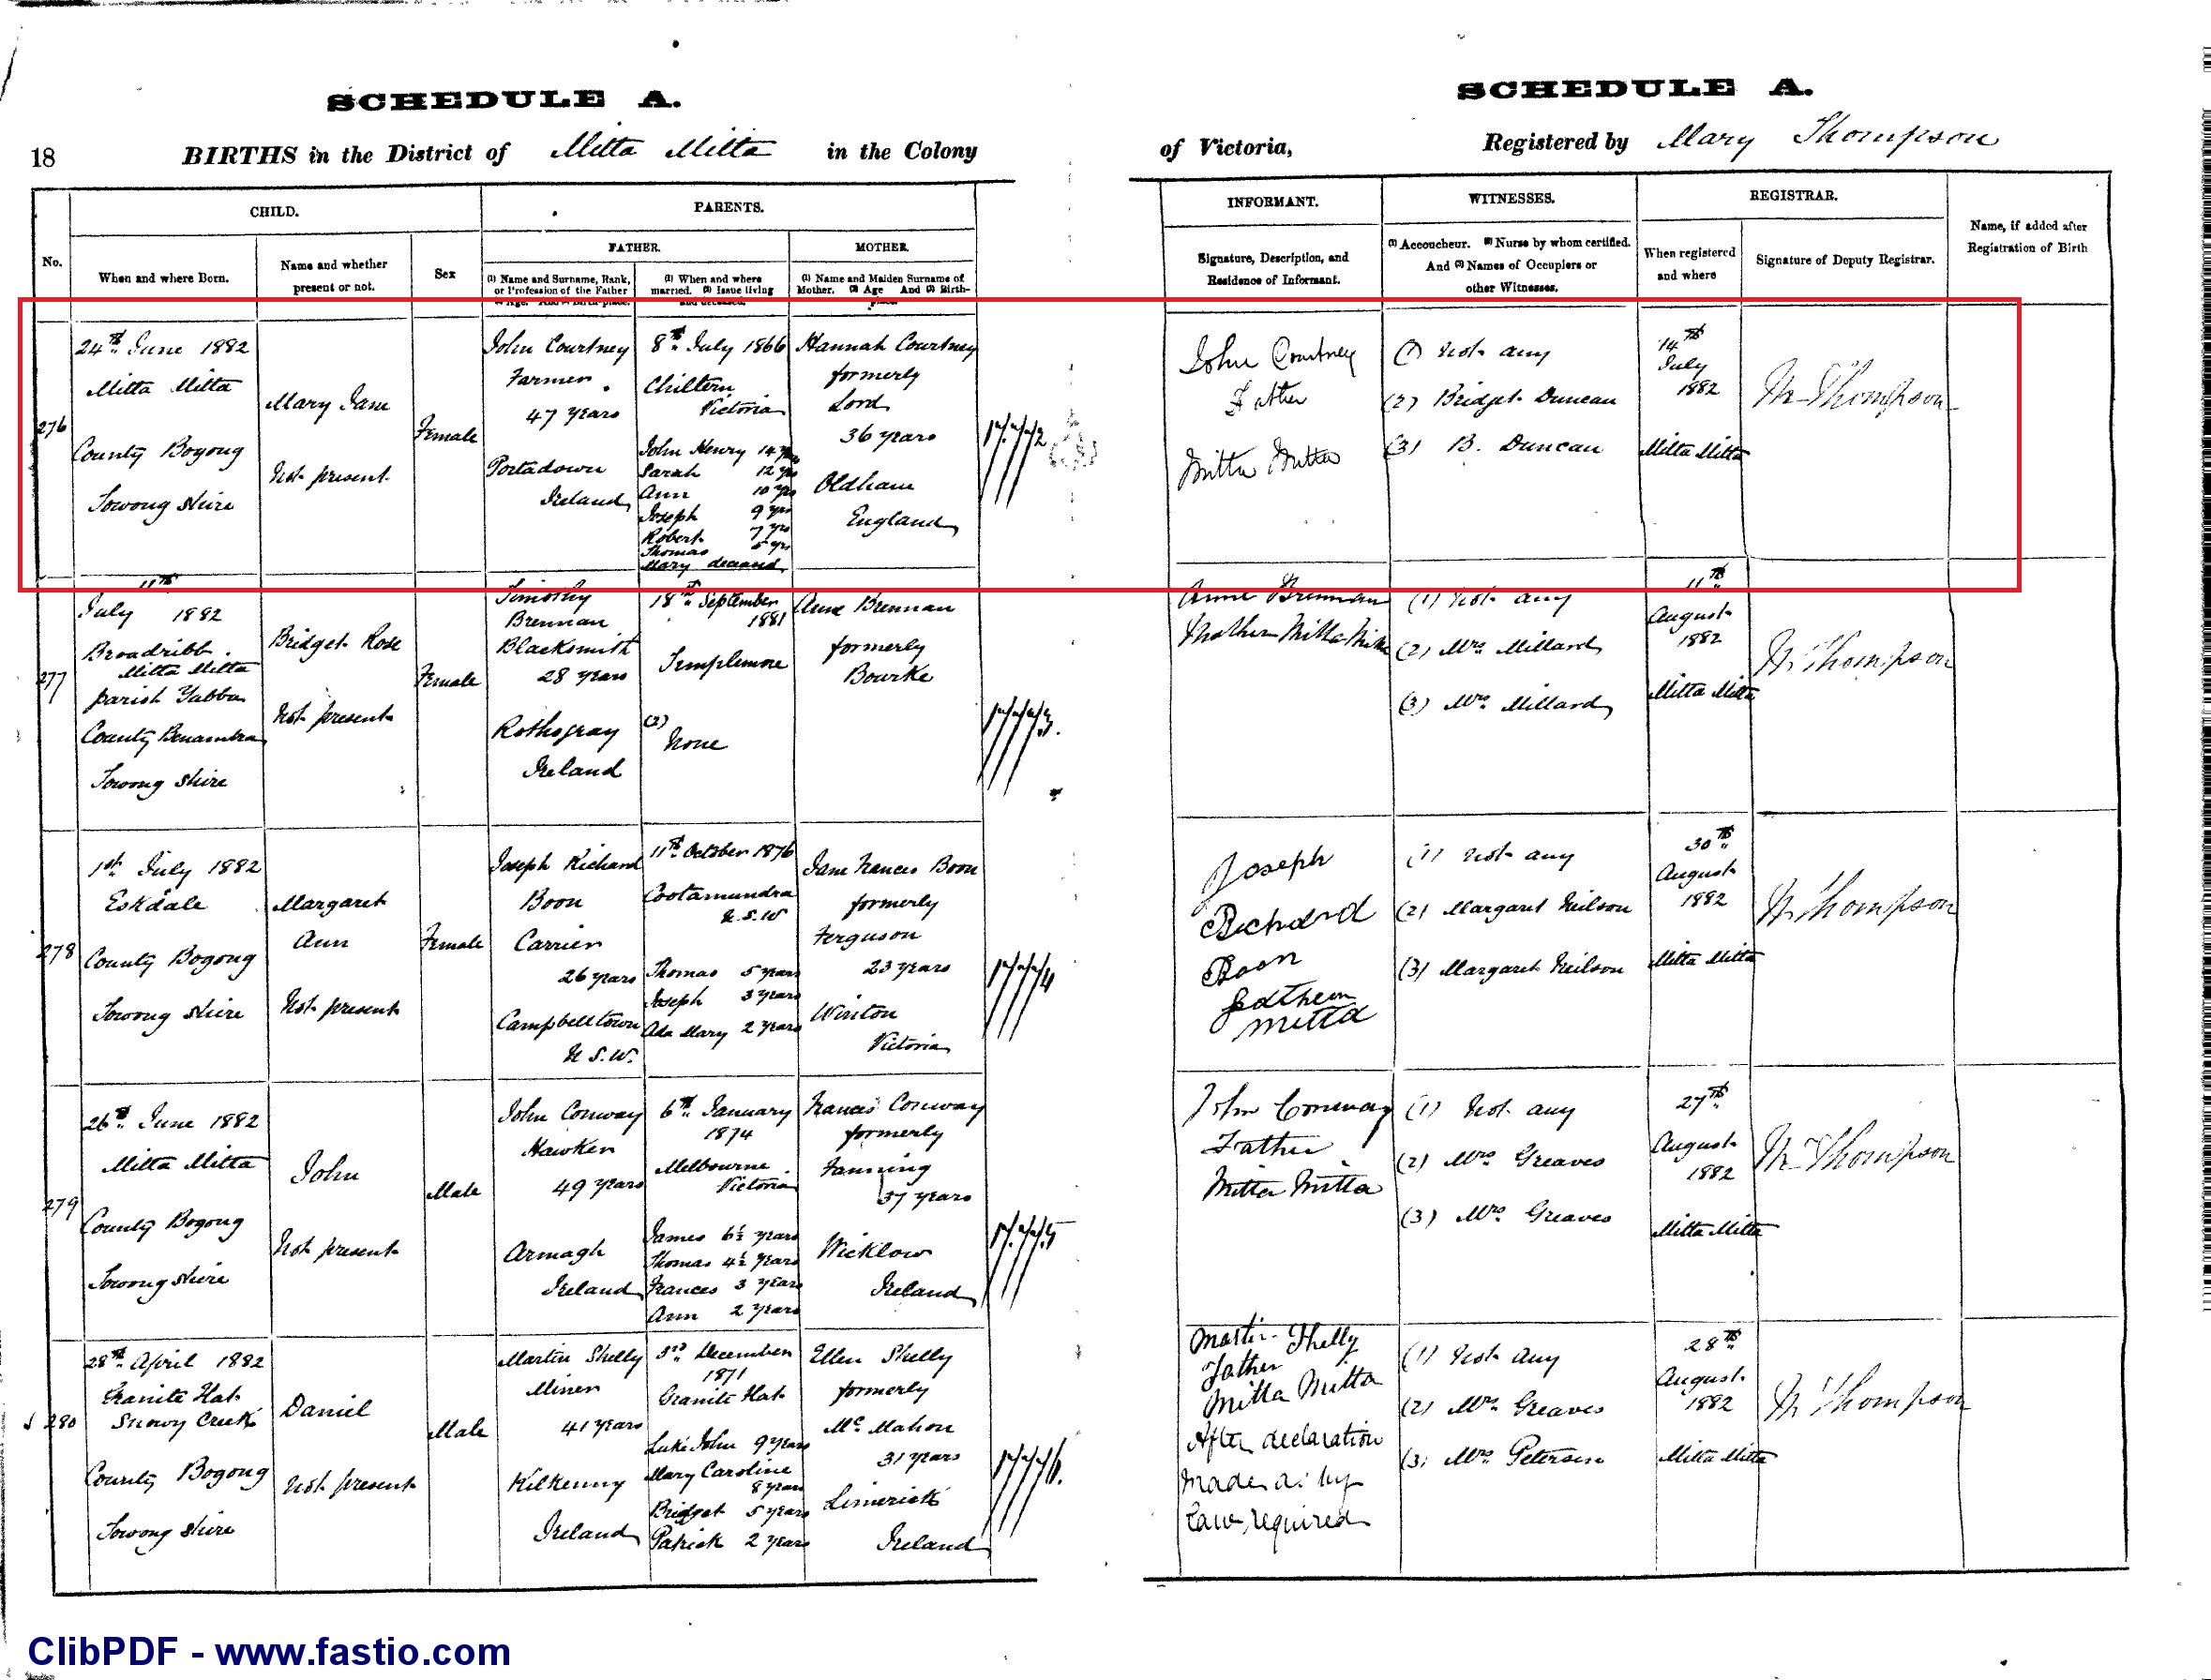 SCHEDULE A.
SCHEDULE A.
18
BIRTHS in the District of Mitta Mitta in the Colony
of Victoria,
Registered by Mary Thompson
No.
CHILD.
When and where Born.
Name and whether
present or not.
Sex
PARENTS.
FATHER.
(1) Name and Surname, Rank,
or Profession of the Father
(1) When and where
married. (2) Issue living
and deceased.
MOTHER.
(1) Name and Maiden Surname of
Mother. (2) Age And (3) Birth-
place
INFORMANT.
Signature, Description, and
Residence of Informant.
WITNESSES.
(1) Accoucheur. (2) Nurse by whom certified.
And (3) Names of Occupiers or
other Witnesses.
REGISTRAR.
When registered
and where
Signature of Deputy Registrar.
Name, if added after
Registration of Birth
276
24th June 1882
Mitta Mitta
County Bogong
Towong Shire
Mary Jane
Not present
Female
John Courtney
Farmer
47 years
Portadown
Ireland
8th July 1866
Chiltern
Victoria
John Henry 14 yrs
Sarah 12 yrs
Ann 10 yrs
Joseph 9 yrs
Robert 7 yrs
Thomas 5 yrs
Mary deceased
Hannah Courtney
formerly
Lord
36 years
Oldham
England
17772
John Courtney
Father
Mitta Mitta
(1) Not any
(2) Bridget Duncan
(3) B. Duncan
14th
July
1882
Mitta Mitta
M Thompson
277
11th
July 1882
Broadribb
Mitta Mitta
parish Yabba
County Benambra
Towong Shire
Bridget Rose
Not present
Female
Timothy
Brennan
Blacksmith
28 years
Ireland
18th September
1881
Templemore
(2)
None
Anne Brennan
formerly
Bourke
17773.
Anne Brennan
Mother Mitta Mitta
(1) Not any
(2) Mrs Millard
(3) Mrs Millard
11th
August
1882
Mitta Mitta
M Thompson
278
1st July 1882
Eskdale
County Bogong
Towong Shire
Margaret
Ann
Not present
Female
Joseph Richard
Boon
Carrier
26 years
Campbelltown
N.S.W.
11th October 1876
Cootamundra
N.S.W
Thomas 5 years
Joseph 3 years
Ada Mary 2 years
Jane Frances Boon
formerly
Ferguson
23 years
Winton
Victoria
17774
Joseph
Richard
Boon
Mitta
(1) Not any
(2) Margaret Neilson
(3) Margaret Neilson
30th
August
1882
Mitta Mitta
M Thompson
279
26th June 1882
Mitta Mitta
County Bogong
Towong Shire
John
Not present
Male
John Conway
Hawker
49 years
Armagh
Ireland
6th January
1874
Melbourne
Victoria
James 6½ years
Thomas 4½ years
Frances 3 years
Ann 2 years
Frances Conway
formerly
Fanning
37 years
Wicklow
Ireland
17775
John Conway
Father
Mitta Mitta
(1) Not any
(2) Mrs Greaves
(3) Mrs Greaves
27th
August
1882
Mitta Mitta
M Thompson
280
28th April 1882
Granite Flat
Snowy Creek
County Bogong
Towong Shire
Daniel
Not present
Male
Martin Shelly
Miner
41 years
Kilkenny
Ireland
3rd December
1871
Granite Flat
Luke John 9 years
Mary Caroline
8 years
Bridget 5 years
Patrick 2 years
Ellen Shelly
formerly
McMahon
31 years
Limerick
Ireland
17776.
Martin Shelly
Father
Mitta Mitta
After declaration
made as by
Law required
(1) Not any
(2) Mrs Greaves
(3) Mrs Petersen
28th
August
1882
Mitta Mitta
M Thompson
ClibPDF - www.fastio.com